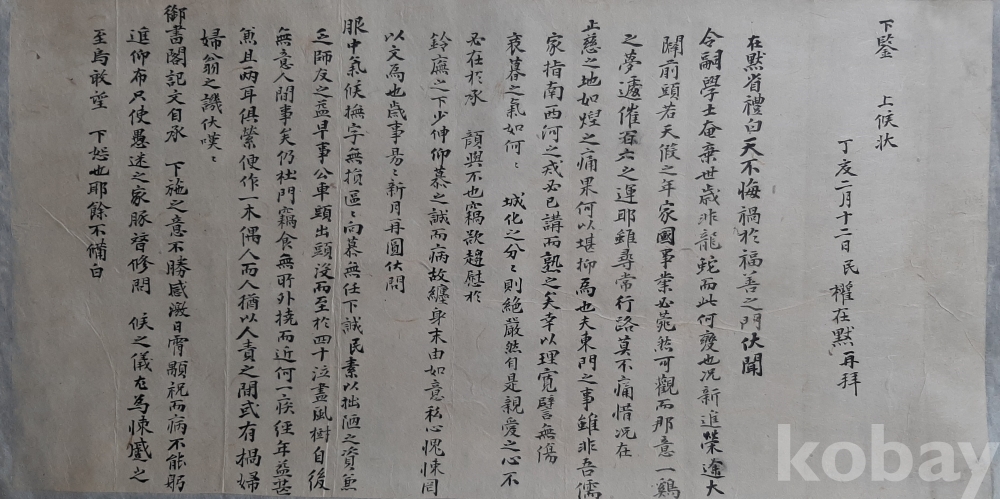 下鑒 上候狀
丁亥二月十二日民 權在默再拜
在默省禮白天不悔禍於福善之門伏聞
令嗣學士奄棄世歲非龍蛇而此何變也況新進榮途大
闢前頭若天假之年家國事業必菀然可觀而那意一鷄
之夢遽催百六之運耶雖尋常行路莫不痛惜況在
止慈之地如煌之痛果何以堪抑為也夫東門之事雖非吾儒
家指南西河之戒必已講而熟之矣幸以理寬譬無傷
衰暮之氣如何〻 城化之分〻則絕嚴然自是親愛之心不
必在於承 顏與不也竊欲趨慰於
鈴廡之下少伸仰慕之誠而病故纏身末由如意私心愧悚罔
以文為也歲事芿〻新月再圓伏問
服中氣候撫字無損區〻向慕無任下誠民素以拙陋之資兼
乏師友之益早事公車頭出頭沒而至於四十泣盡風樹自後
無意人間事矣仍杜門竊食無所外撓而近何一疾經年益甚
且兩耳俱縈使作一木偶人而人猶以人責之間或有搗婦
婦翁之譏伏嘆〻
御書閣記文自承 下施之意不勝感激日膺顒祝而病不能躬
進仰布只使愚迷之家豚替修問 候之儀在為悚蹙之
至烏敢望 下恕也耶餘不備白
kobay